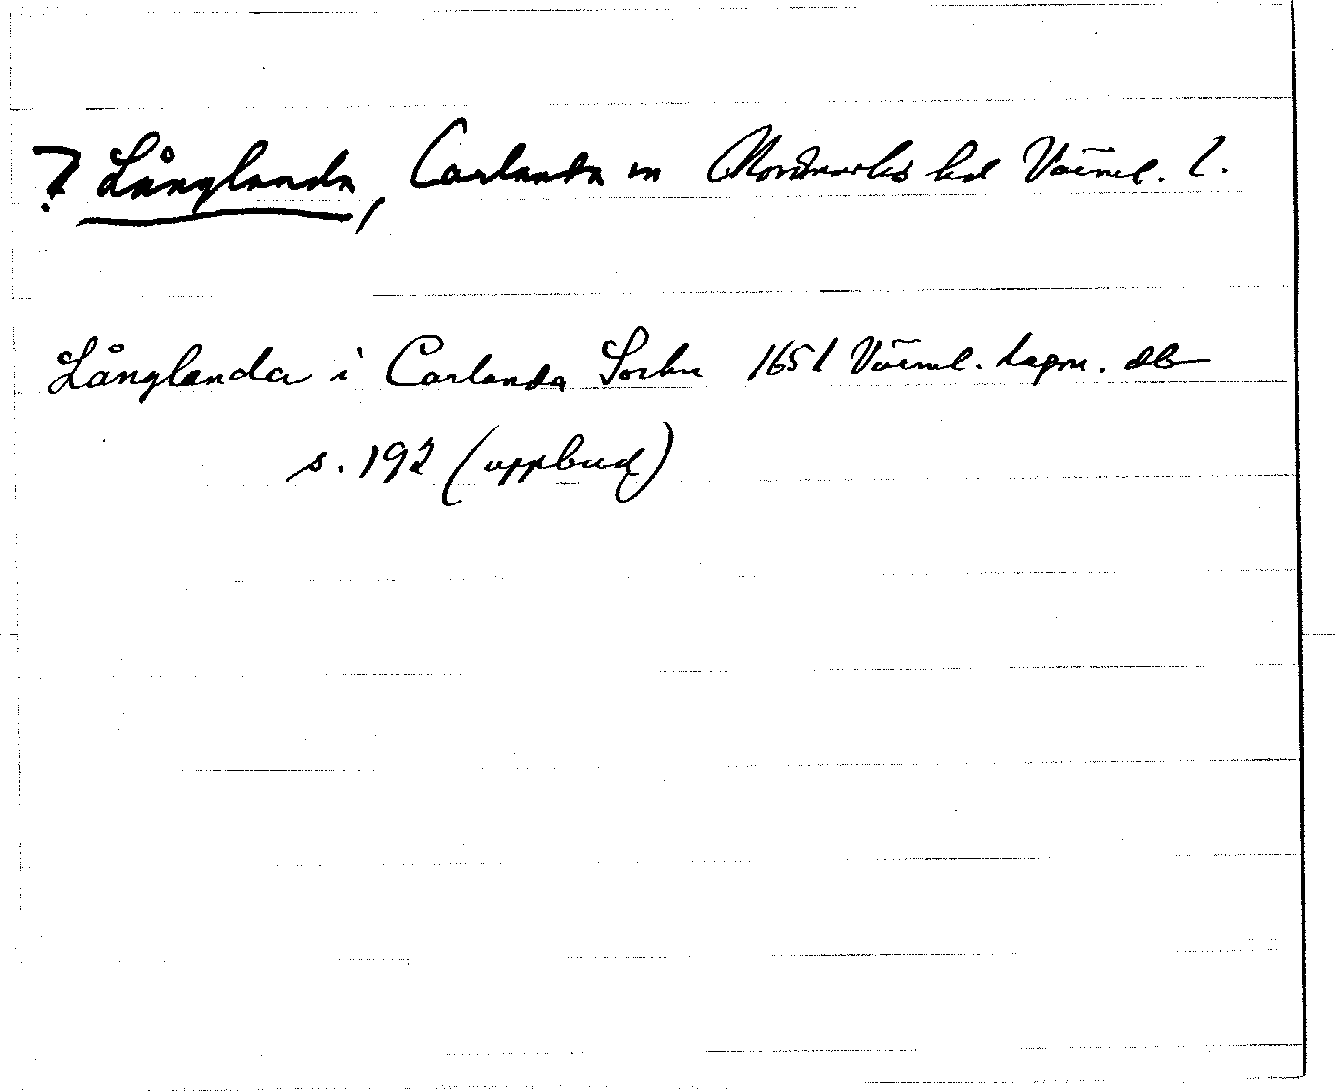 ? Långlanda, Carlanda sn Nordmarks hd Värml. l.
Långlanda i Carlanda Sochn 1651 Värml. Lagm. db
s. 192 (uppbud)